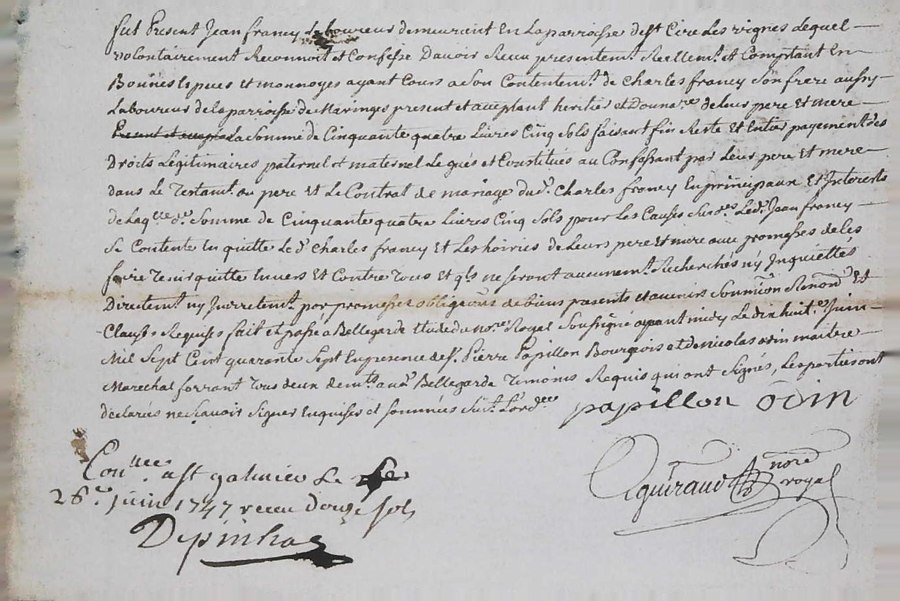 fut Present Jean francy Laboureur demeurent En La parroisse de st Cire Les vignes Lequel
volontairement Reconnoit et Confesse Davoir Receu presentemt. Reellemt. et Comptant En
Bonnes Espices et monnoyes ayant Cours a Son Contentemt. de Charles francy Son frere aussy
Laboureur de la parroisse de Maringes present et aceptant heritier et Donnare. de leur pere Et mere
La Somme de Cinquante quatre Livres Cinq Sols faisant fin Reste Et Entier payement des
Droits Legitimaires paternel et maternel Legués et Constitués au Confessant par Leur pere Et mere
dans Le Testamt. du pere Et Le Contrat de mariage dud. Charles francy En principaux Et Interests
de Laqlle. de. Somme de Cinquante quatre Livres Cinq Sols pour Les Causes Susdes. Led. Jean francy
Se Contente En quitte Led. Charles francy Et Les hoiries de Leurs pere et mere aux promesses de les
faire Tenir quitte Envers Et Contre Tous et qls ne Seront aucunemt. Recherchés ny Inquiettés
Directemt. ny Indirectemt. par promesses obligeaons de biens presents et avenirs Soumion Renond. Et
Clauses Requises fait et passé a Bellegarde Etude du nore. Royal Soussigné avant midy Le dix huite. Juin
Mil Sept Cent quarante Sept En presence de sr. Pierre Papillon Bourgeois et de nicolas odin maitre
Marechal ferrant Tous deux demts. aud. Bellegarde Temoins Requis qui ont Signés, Les parties ont
declarés ne Sçavoir Signer Enquises et Sommées Suivt. L'ordce.
papillon odin
Conllée a St galmier Le
28e. juin 1747 receu douze sols
Depinhac
aguiraud nore royal